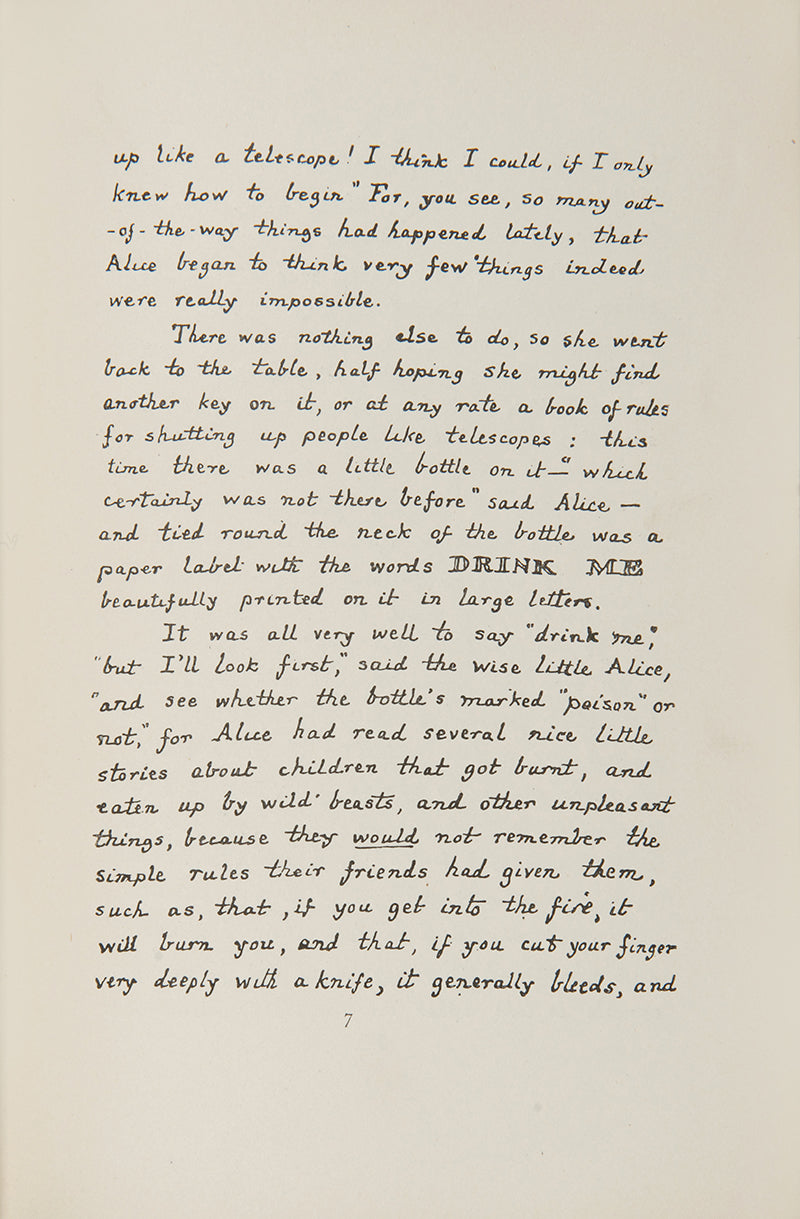 up like a telescope! I think I could, if I only
knew how to begin" For, you see, so many out-
-of-the-way things had happened lately, that
Alice began to think very few things indeed
were really impossible.
There was nothing else to do, so she went
back to the table, half hoping she might find
another key on it, or at any rate a book of rules
for shutting up people like telescopes : this
time there was a little bottle on it — "which
certainly was not there before" said Alice —
and tied round the neck of the bottle was a
paper label with the words DRINK ME
beautifully printed on it in large letters.
It was all very well to say "drink me,"
"but I'll look first," said the wise little Alice,
"and see whether the bottle's marked "poison" or
not," for Alice had read several nice little
stories about children that got burnt, and
eaten up by wild beasts, and other unpleasant
things, because they would not remember the
simple rules their friends had given them,
such as, that, if you get into the fire, it
will burn you, and that, if you cut your finger
very deeply with a knife, it generally bleeds, and
7